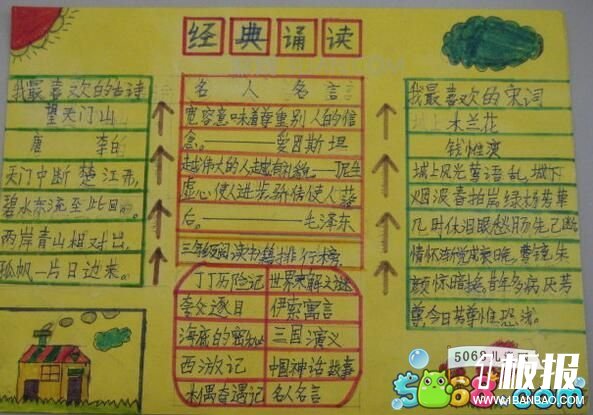 经典诵读
我最喜欢的古诗
望天门山
唐 李白
天门中断楚江开,
碧水东流至此回。
两岸青山相对出,
孤帆一片日边来。
名人名言
宽容意味道尊重别人的信
念。——爱因斯坦
越伟大的人越有礼貌——
虚心使人进步骄傲使人落
后。——毛泽东
读书籍排行榜
丁丁历险记 世界未解之谜
夸父逐日 伊索寓言
海底的 三国演义
西游记 中国神话故事
木偶奇遇记 名人名言
我最喜欢的宋词
木兰花
钱惟演
城上风光莺语乱,城下
烟波春拍岸绿杨芳草
几时休泪眼愁肠先已断
情怀渐觉成衰晚,鸾镜朱
颜惊暗换。昔年多病厌芳
尊,今日芳尊惟恐浅。
5068儿
板报
1BANBAO.COM